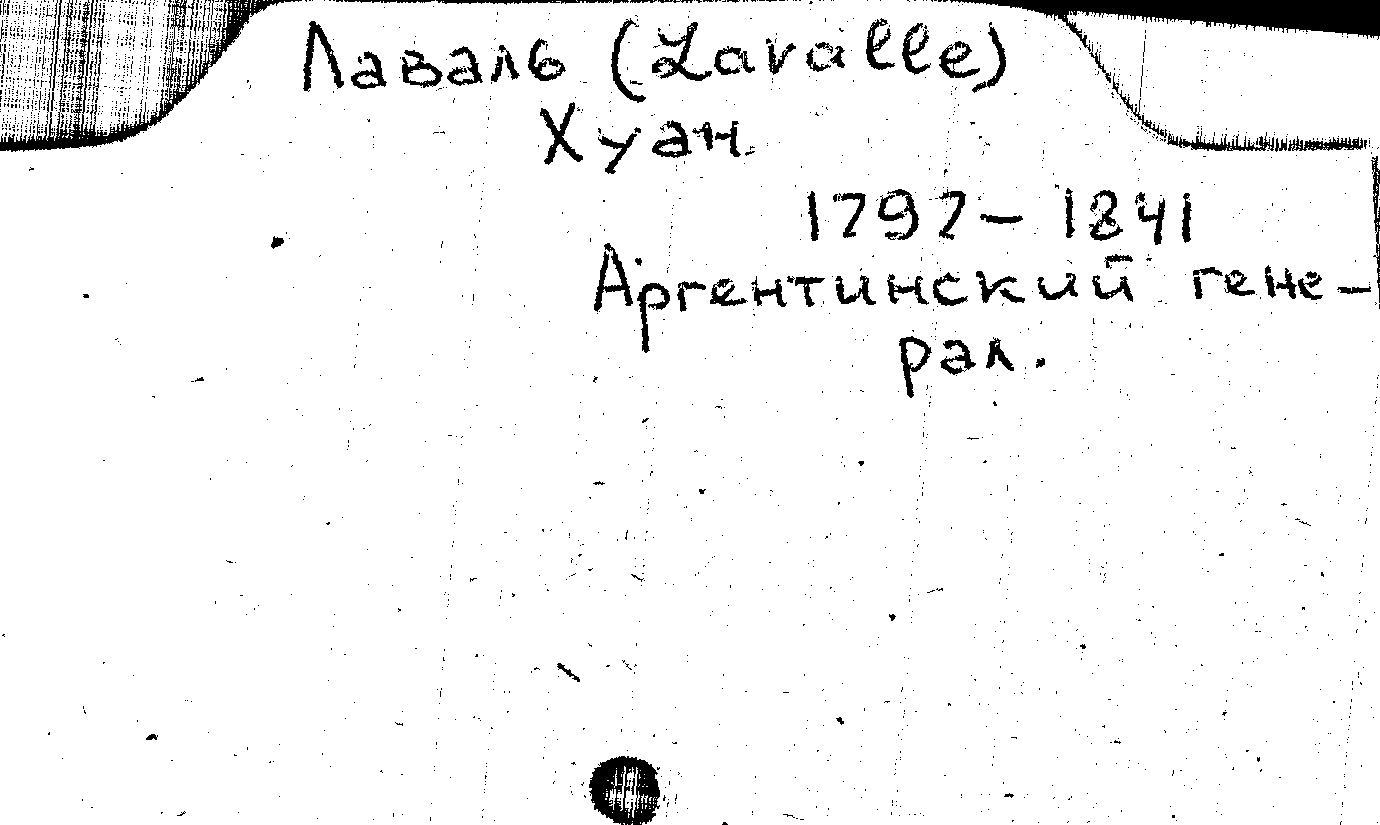 Лаваль (Lavalle)
Хуан
1797 – 1841
Аргентинский гене-
рал.